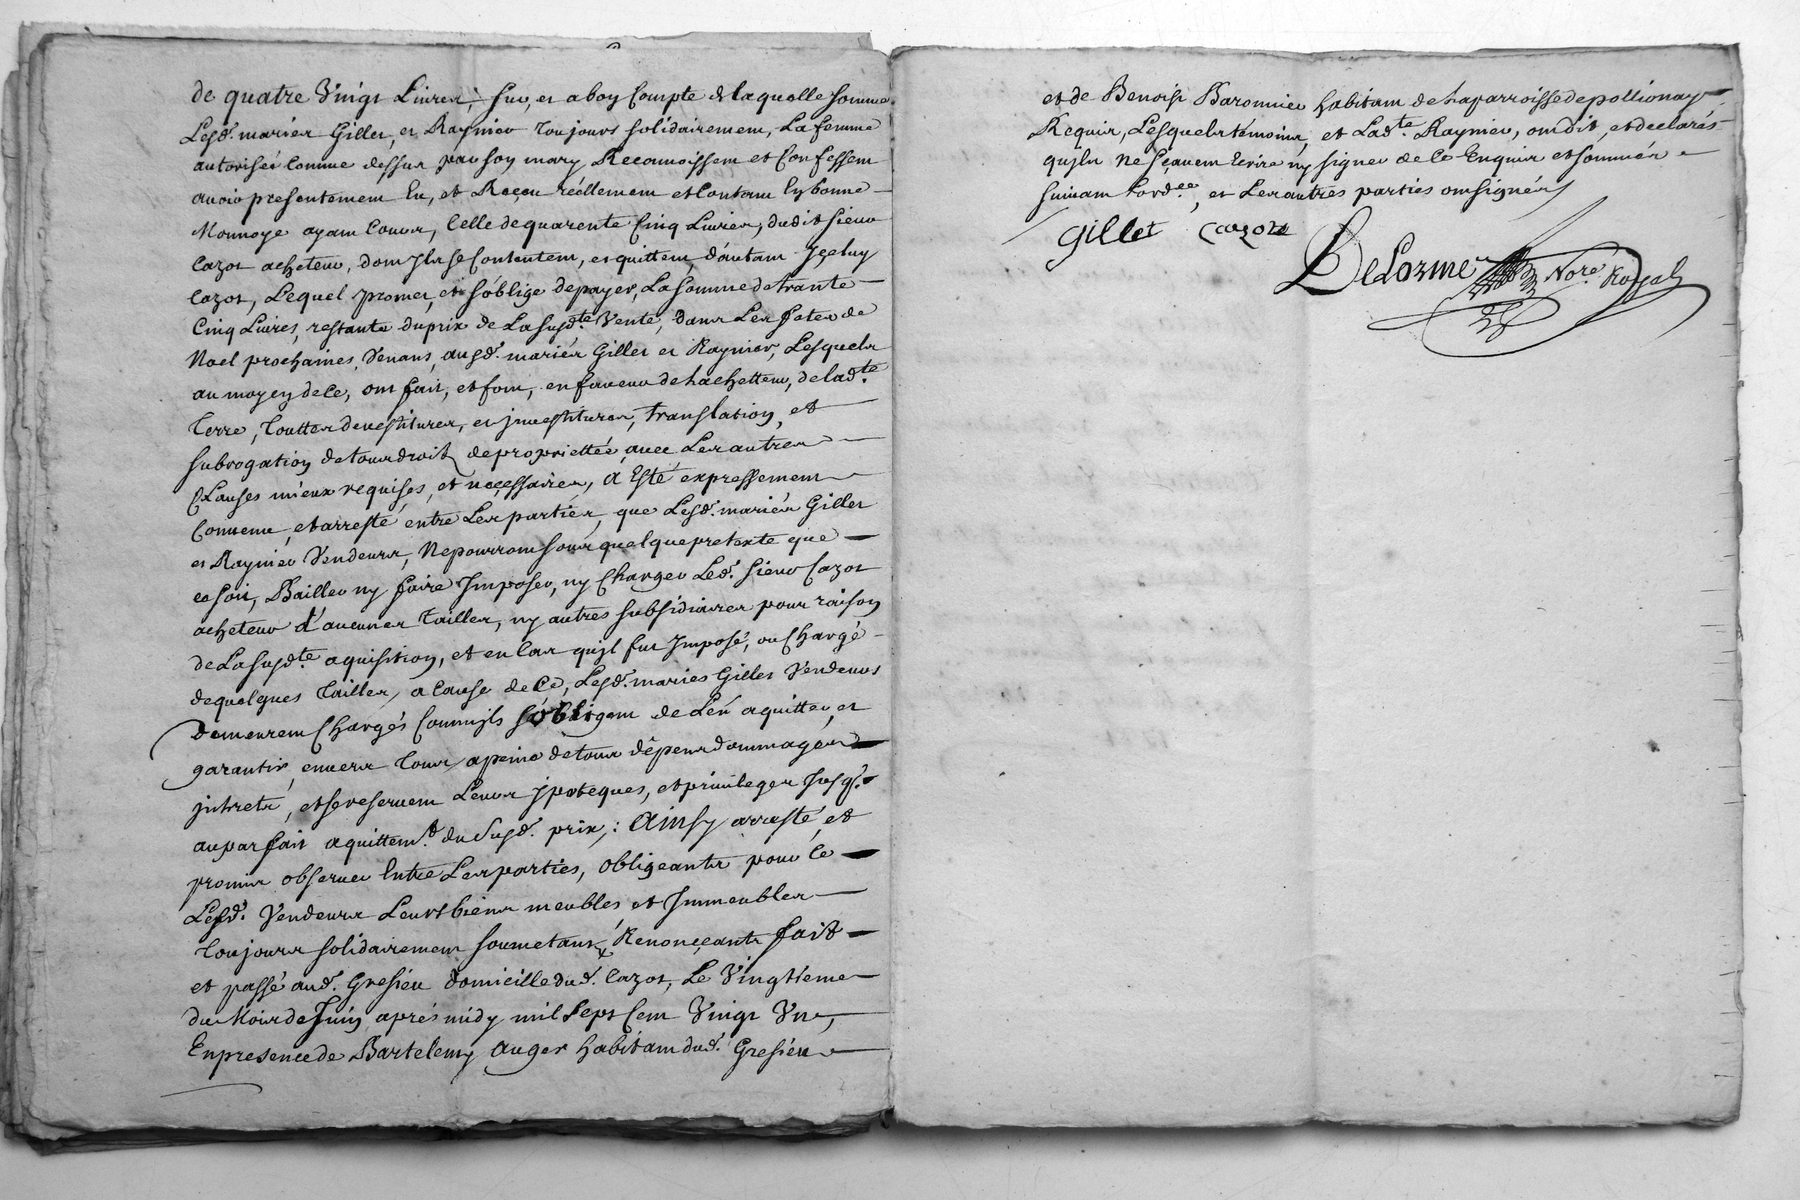 de quatre Vingt Livres, sur, et a bon Compte de laquelle somme
Lesd. mariés Gillet, et Raynier toujours solidairement, La femme
autorisée Comme dessus par son mary, Reconnoissent et Confessent
avoir presentement Eu, et Reçeu réellement et Contant En bonne
Monnoye ayant Cours, Celle de quarente Cinq Livres, dudit sieur
Cazot acheteur, dont Ils se Contentent, et quittent d'autant Iceluy
Cazot, Lequel promet, et s'oblige de payer, La somme de trante
Cinq Livres, restante du prix de La susd.te Vente, Dans Les fetes de
Noel prochaines, Venant, ausd. mariés Gillet et Raynier, Lesquels
au moyen de Ce, ont fait, et font, en faveur de L'achetteur, de lad.te
Terre, Touttes devestitures, et investitures, translation, et
subrogation de tous droits de proprietté avec Les autres
Clauses mieux requises, et neçessaires, à Esté expressement
Convenu, et arresté entre Les parties, que Lesd. mariés Gillet
et Raynier Vendeurs, Ne pourront sous quelque pretexte que
ce soit, Bailler ny faire Imposer, ny Charger Led. sieur Cazot
acheteur d'aucunes Tailles, ny autres subsidiaires pour raison
de La susd.te aquisition, et en Cas qu'il fut Imposé, ou Chargé
de quelques Tailles, a Cause de Ce, Lesd. maries Gillet Vendeurs
Demeurent Chargés Comm'ils s'obligent de L'en aquitter, et
garantir, envers tous, a peine de tous dépens dommages
intrets, et se reservent Leurs ipoteques, et privileges Jusq.
au parfait aquittem.t du susd. prix,: Ainsy arresté, et
promis observer Entre Les parties, obligeants pour Ce
Lesd. Vendeurs Leurs biens meubles et Immeubles
Toujours solidairement soumetants, Renonçants fait
et passé aud. Gresieu domicille dud. Cazot, Le Vingtieme
du Mois de Juin aprés midy mil sept Cent Vingt Un,
En presence de Bartelemy Auger habitant dud. Gresieu
et de Benoist Baronnier habitant de la parroisse de pollionay
Requis, Lesquels témoins, et Lad.te Raynier, ont dit, et declarés
qu'ils ne sçavent Ecrire ny signer de Ce Enquis et sommés
suivant L'ord.ce, et Les autres parties ont signés
Gillet Cazot
DeLorme Nore. Royal